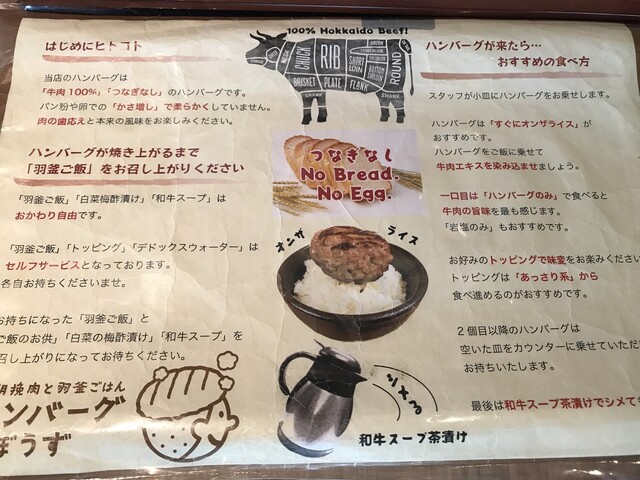 はじめにヒトコト
当店のハンバーグは
「牛肉 100%」「つなぎなし」のハンバーグです。
パン粉や卵での「かさ増し」で柔らかくしていません。
肉の歯応えと本来の風味をお楽しみください。
ハンバーグが焼き上がるまで
「羽釜ご飯」をお召し上がりください
「羽釜ご飯」「白菜梅酢漬け」「和牛スープ」は
おかわり自由です。
「羽釜ご飯」「トッピング」「デドックスウォーター」は
セルフサービスとなっております。
各自お持ちくださいませ。
お持ちになった「羽釜ご飯」と
ご飯のお供」「白菜の梅酢漬け」「和牛スープ」を
召し上がりになってお待ちください。
挽肉と羽釜ごはん
ンバーグ
ぼうず
100% Hokkaido Beef!
CHUCK
RIB
SHORT LOIN
SIRLOIN
ROUND
BRISKET
PLATE
FLANK
SHANK
SHANK
つなぎなし
No Bread.
No Egg.
オンザ
ライス
シメる
和牛スープ茶漬け
ハンバーグが来たら…
おすすめの食べ方
スタッフが小皿にハンバーグをお乗せします。
ハンバーグは「すぐにオンザライス」が
おすすめです。
ハンバーグをご飯に乗せて
牛肉エキスを染み込ませましょう。
一口目は「ハンバーグのみ」で食べると
牛肉の旨味を最も感じます。
「岩塩のみ」もおすすめです。
お好みのトッピングで味変をお楽しみくださ
トッピングは「あっさり系」から
食べ進めるのがおすすめです。
2個目以降のハンバーグは
空いた皿をカウンターに乗せていただ
お持ちいたします。
最後は和牛スープ茶漬けでシメて